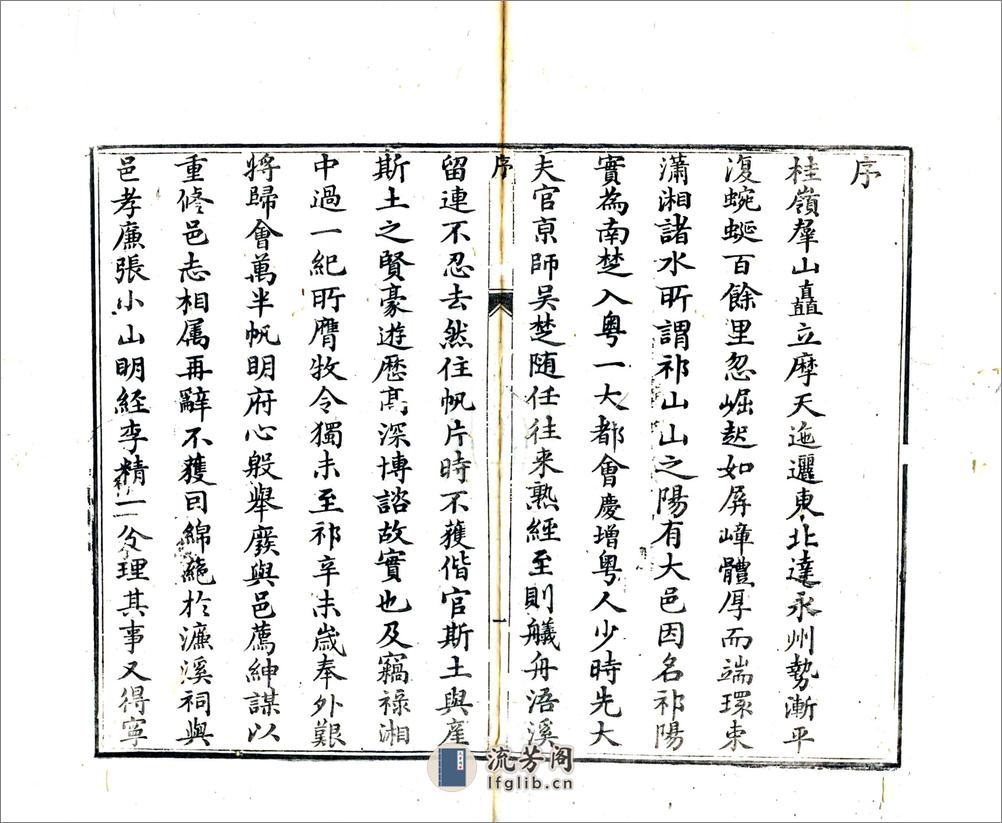 序
桂嶺羣山矗立摩天迤邐東北達永州勢漸平
復蜿蜒百餘里忽崛起如屏嶂體厚而端環束
瀟湘諸水所謂祁山山之陽有大邑因名祁陽
實為南楚入粵一大都會慶增粵人少時先大
夫官京師吳楚随任往来熟經至則艤舟浯溪
序
一
留連不忍去然住帆片時不獲偕官斯土與産
斯土之賢豪遊歷髙深博諮故實也及竊祿湘
中過一紀所膺牧令獨未至祁辛未歲奉外艱
將歸會萬半帆明府心殷舉廢與邑薦紳謀以
重修邑志相属再辭不獲囙綿蕝於濂溪祠與
邑孝廉張小山明經李精一分理其事又得寧
流芳阁
lfglib.cn